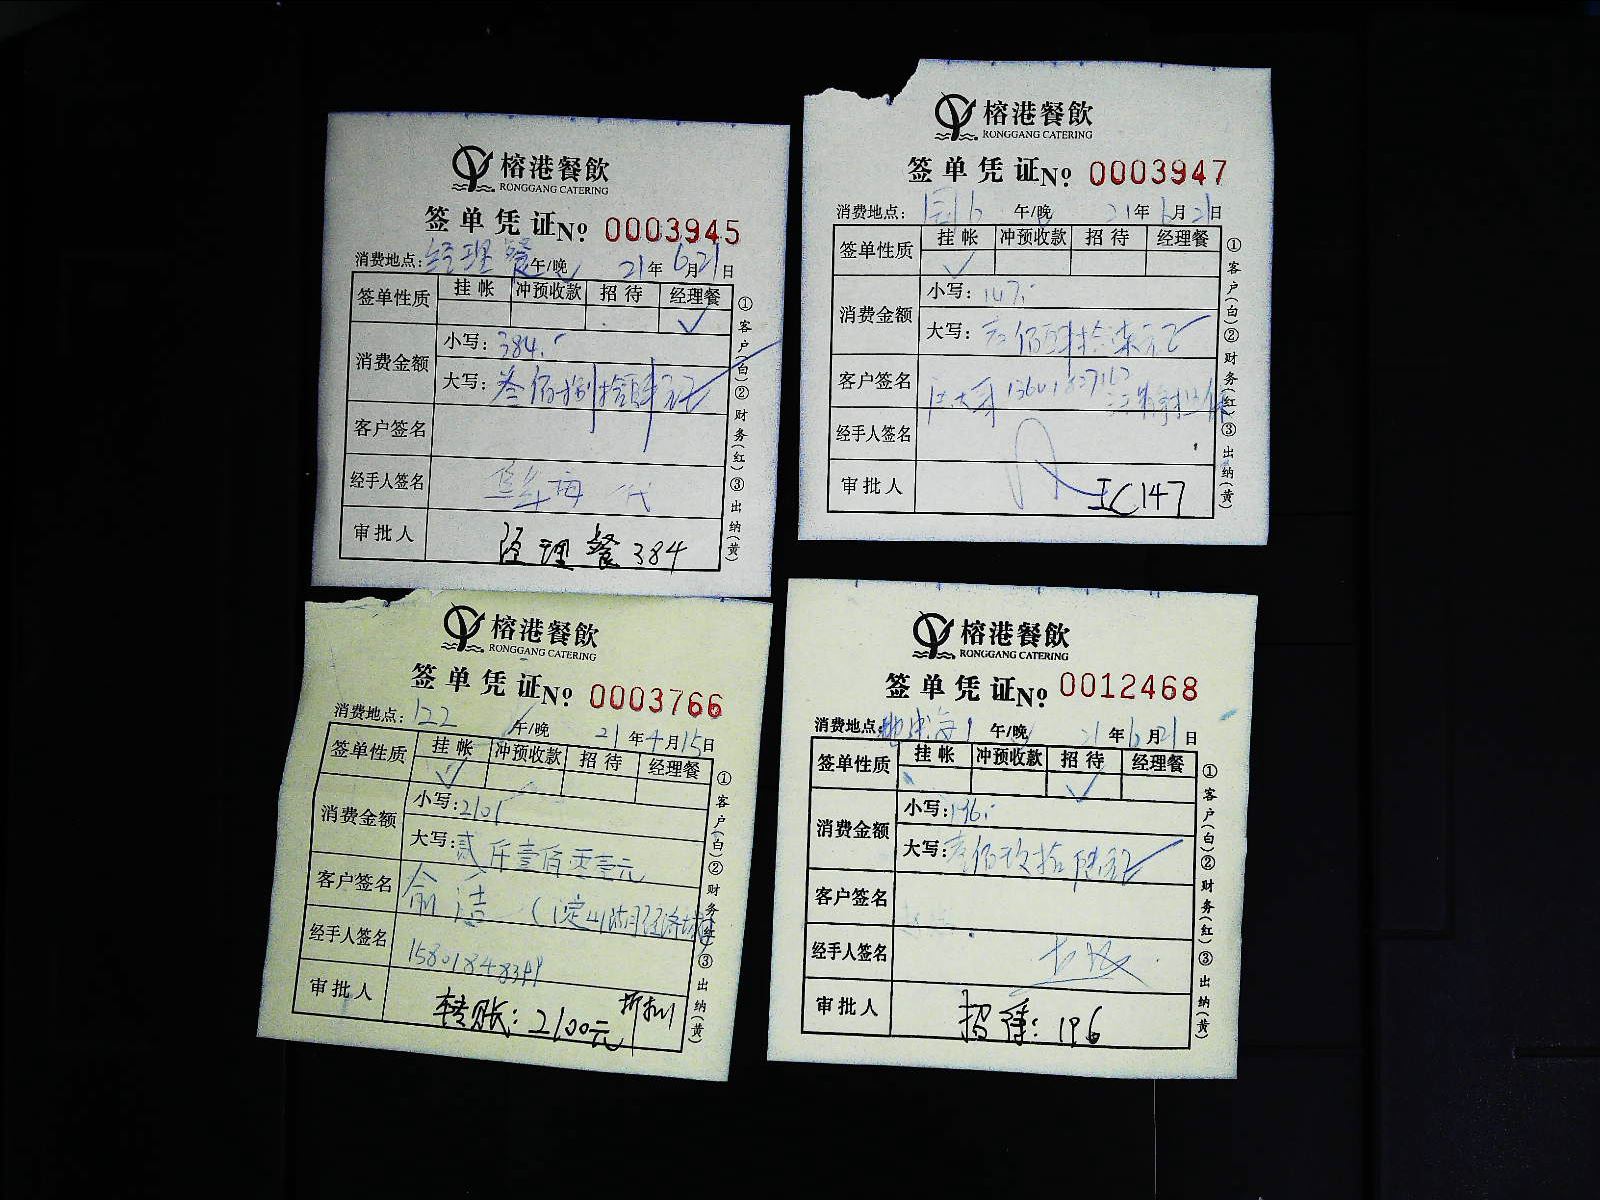 榕港餐飲
RONGGANG CATERING
签单凭证 No 0003945
消费地点: 经理餐 午/晚 21年6月21日
签单性质 挂帐 冲预收款 招待 经理餐
✓
消费金额 小写: 384.-
大写: 叁佰捌拾肆元正
客户签名
经手人签名 代
审批人 经理餐 384
①客户(白)②财务(红)③出纳(黄)
榕港餐飲
RONGGANG CATERING
签单凭证 No 0003947
消费地点: 午/晚 21年6月21日
签单性质 挂帐 冲预收款 招待 经理餐
✓
消费金额 小写: 147.-
大写: 壹佰肆拾柒元正
客户签名
经手人签名
审批人 IC147
①客户(白)②财务(红)③出纳(黄)
榕港餐飲
RONGGANG CATERING
签单凭证 No 0003766
消费地点: 122 午/晚 21年4月15日
签单性质 挂帐 冲预收款 招待 经理餐
✓
消费金额 小写: 2101
大写: 贰仟壹佰零壹元
客户签名 俞洁 (淀山湖经济
经手人签名
审批人 转账: 2100元 折扣1
①客户(白)②财务(红)③出纳(黄)
榕港餐飲
RONGGANG CATERING
签单凭证 No 0012468
消费地点: 午/晚 21年6月21日
签单性质 挂帐 冲预收款 招待 经理餐
✓
消费金额 小写: 196.-
大写: 壹佰玖拾陆元正
客户签名
经手人签名
审批人 招待: 196
①客户(白)②财务(红)③出纳(黄)